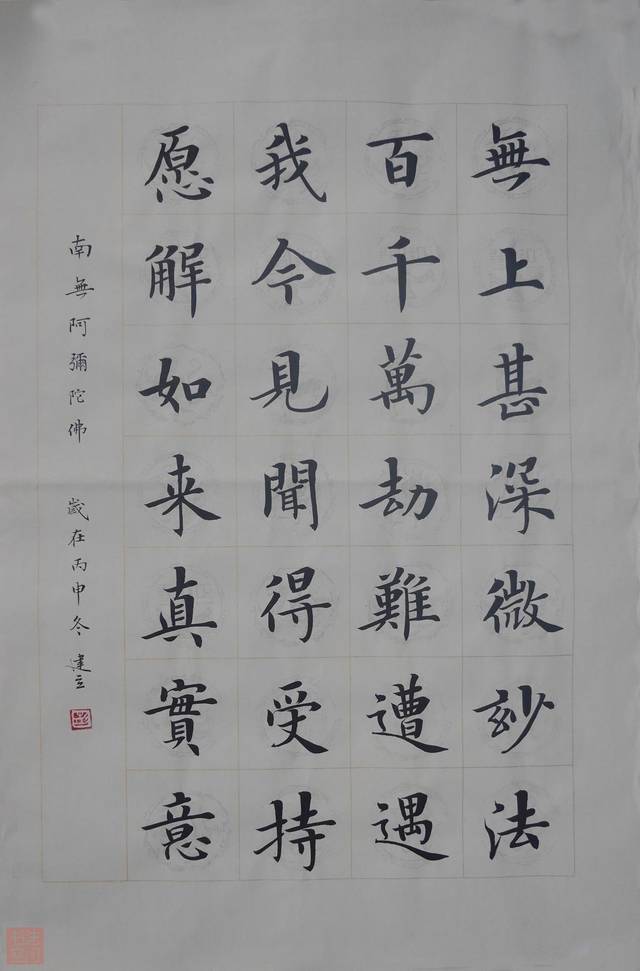 無上甚深微玅法
百千萬劫難遭遇
我今見聞得受持
愿解如来真實意
南無阿彌陀佛 歲在丙申冬 建立